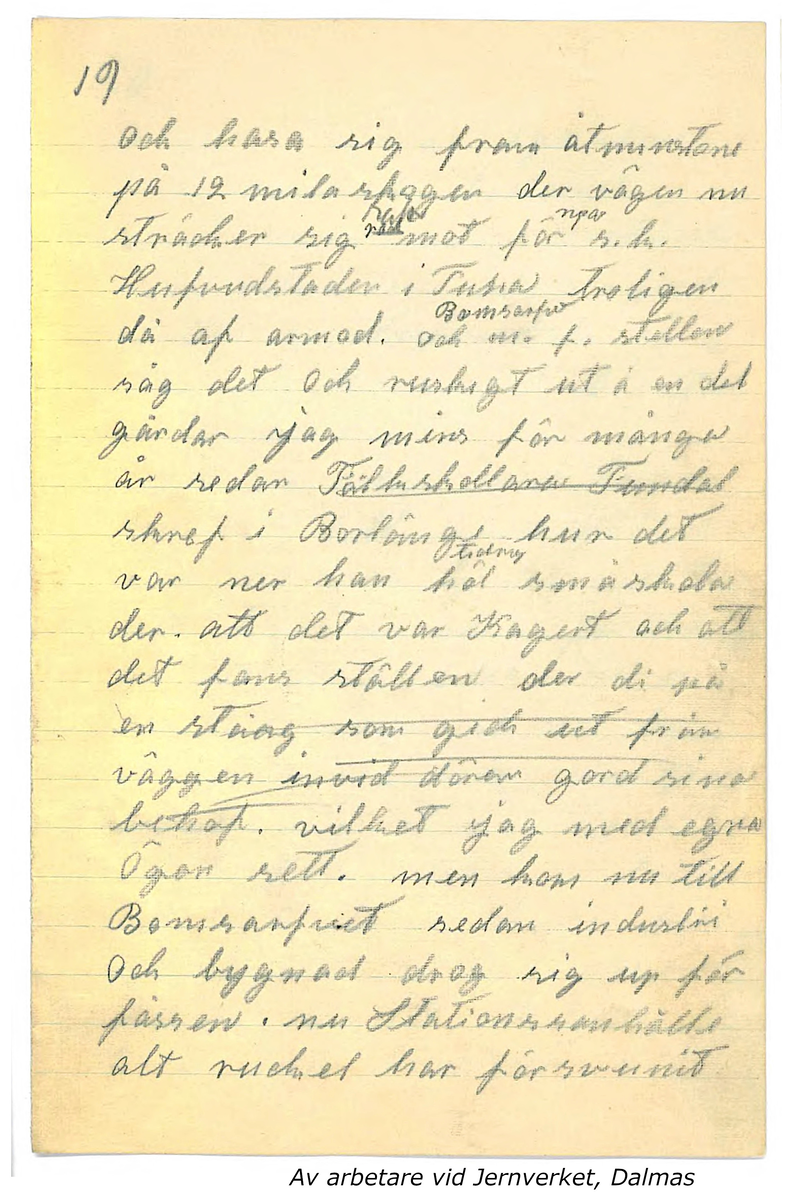 19
och hasa sig fram åtminstone
på 12 mila skogen der vägen nu
sträcker sig rakt mot för s.k.
Hufvudstaden i Tuna troligen
Bomsarfve
då af armod. och m. f. stellen
såg det Och ruskigt ut å en del
gårdar jag mins för många
år sedan Täljkskollaren Tundal
skref i Borlänge hur det
tidning
var ner han höl småskola
der. att det var Kagert och att
det fans ställen der di på
en stång som gick ut från
väggen invid dören gord sina
behof. vilket jag med egna
Ögon sett. men kom nu till
Bomsarfvet sedan industri
Och bygnad drog sig up för
fässen. nu Stationssanhälle
alt ruckel har försvunit
Av arbetare vid Jernverket, Dalmas